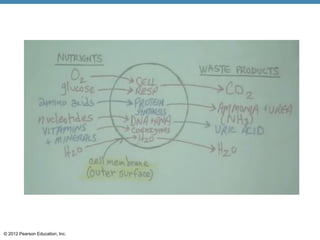 NUTRIENTS
WASTE PRODUCTS
O2
glucose
amino acids
nucleotides
VITAMINS
+ MINERALS
H2O
CELL
RESP
PROTEIN
SYNTHESIS
DNA+RNA
COENZYMES
H2O
CO2
AMMONIA + UREA
(NH3)
URIC ACID
H2O
cell membrane
(outer surface)
© 2012 Pearson Education, Inc.